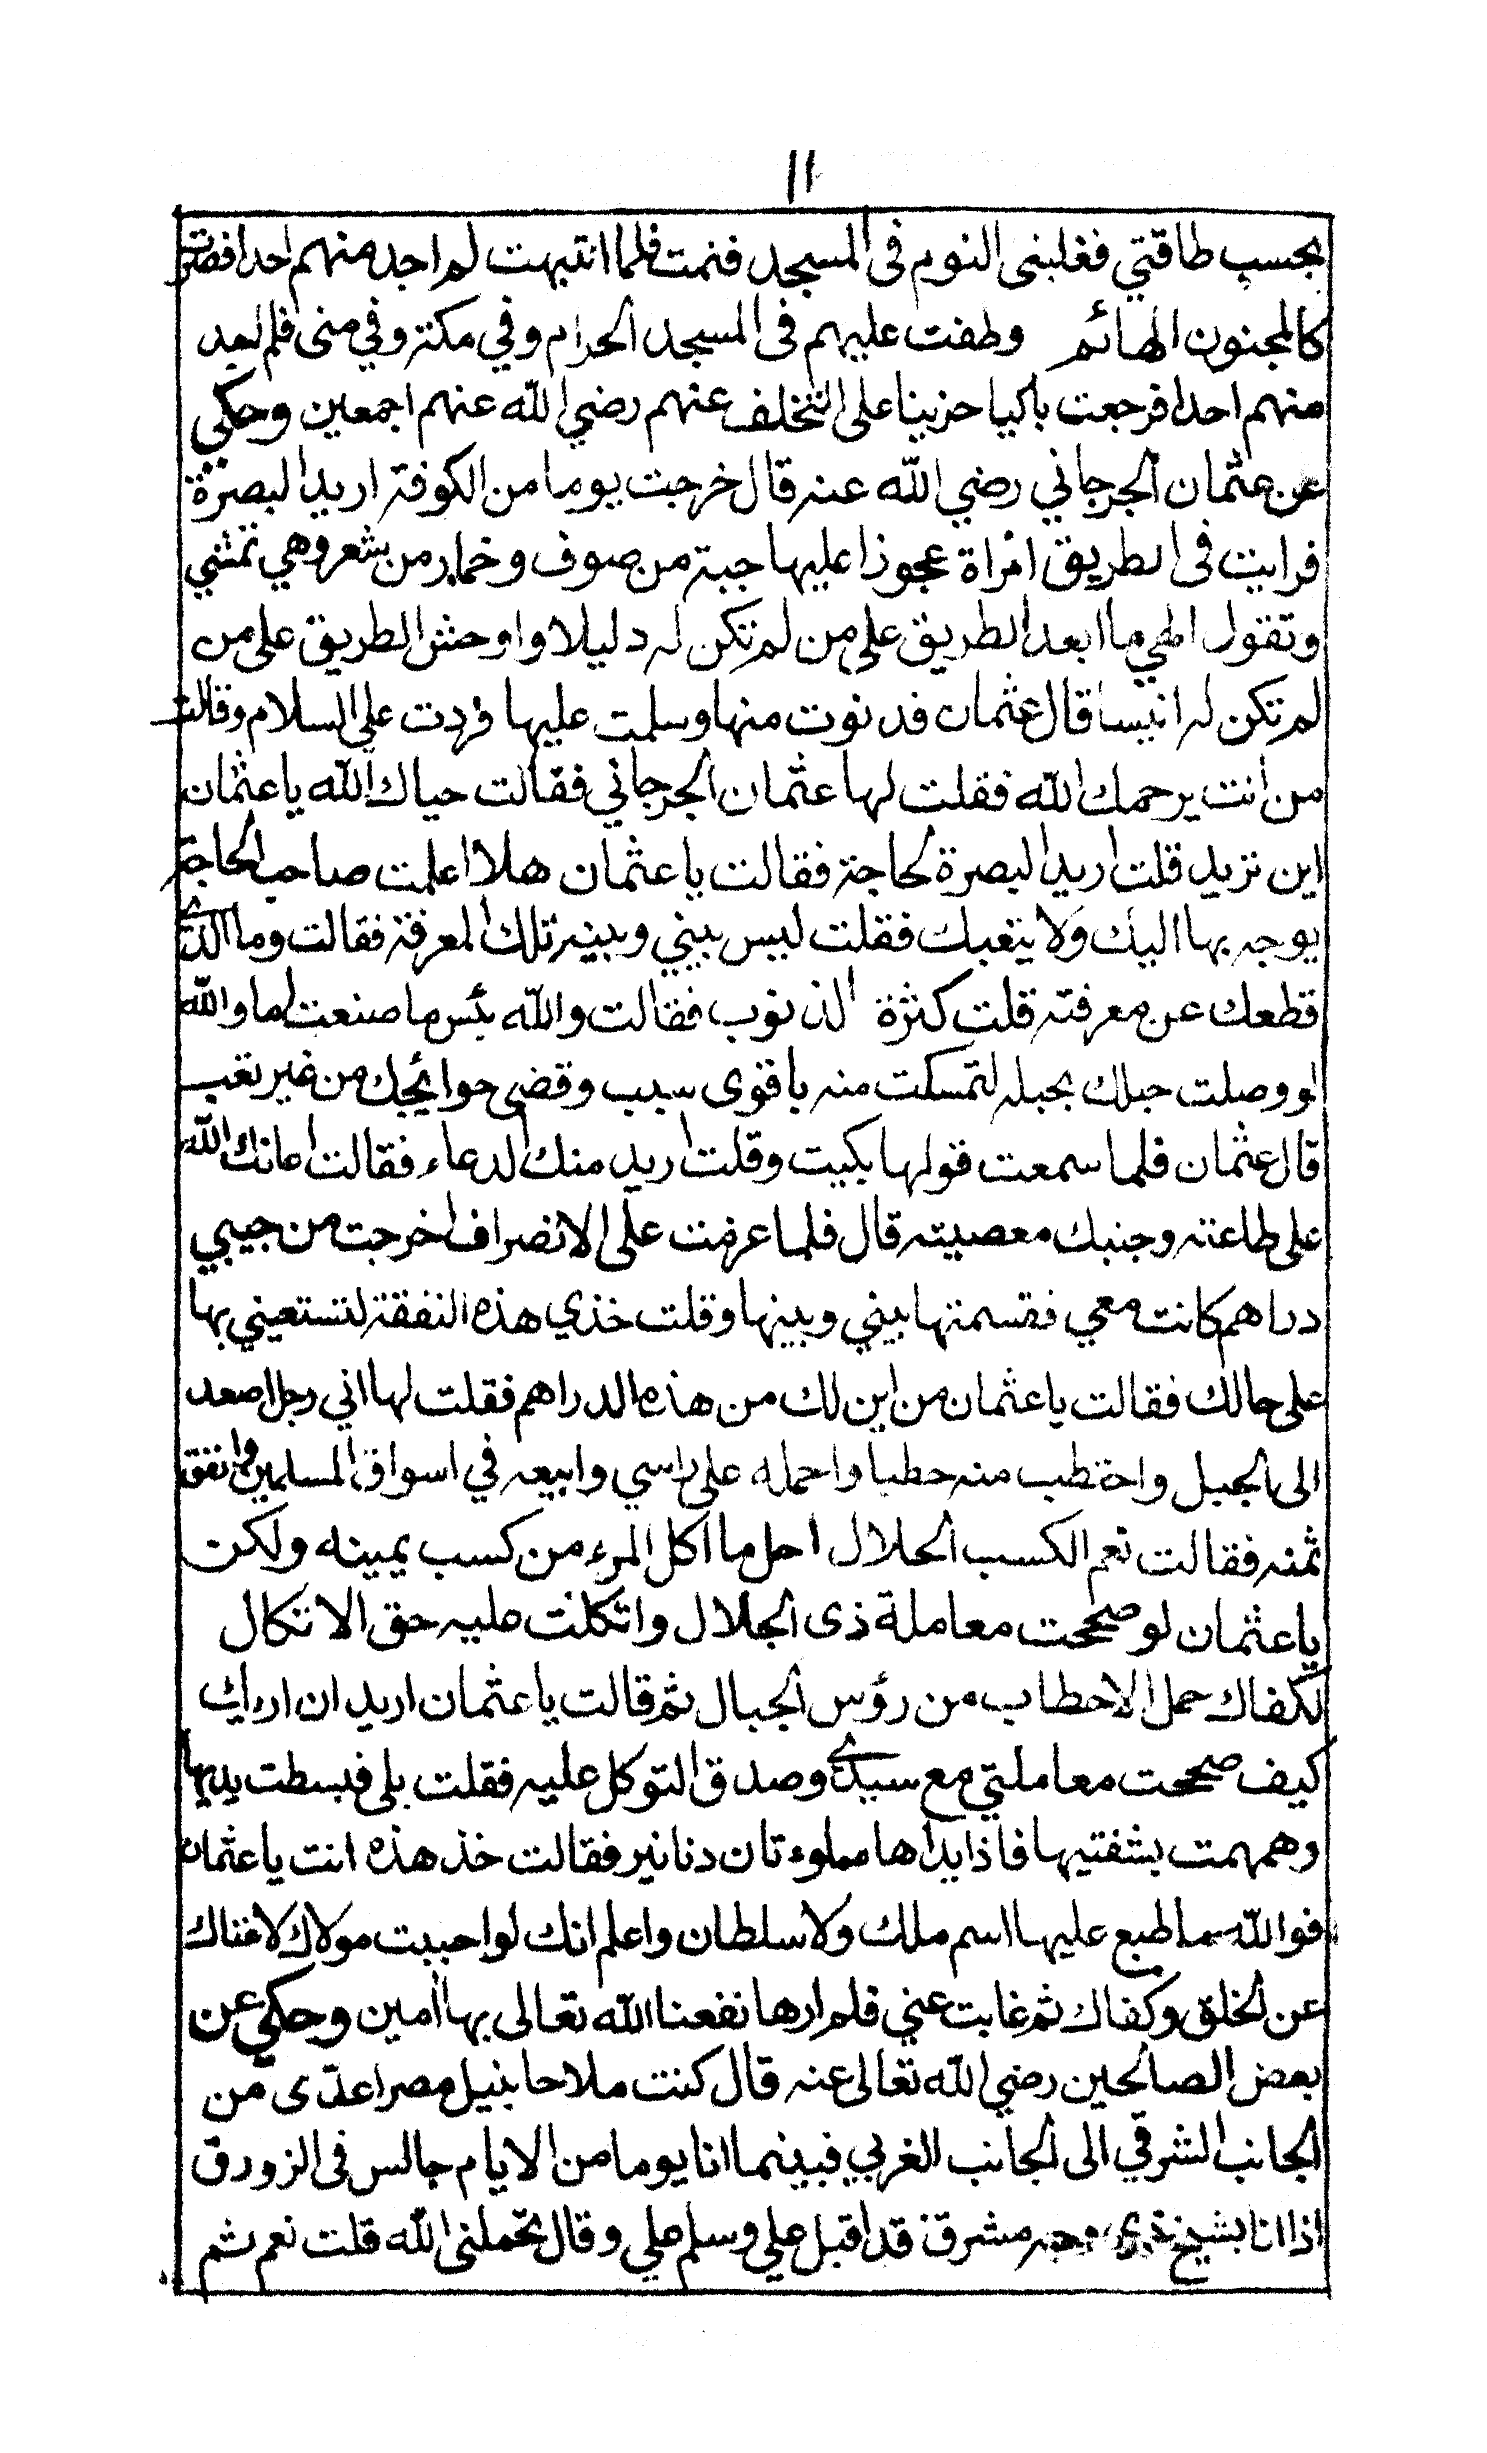 ١١
بحسب طاقتي فغلبنى النوم فى المسجد فنمت فلما انتبهت لم اجد منهم احدا فصرت
كالمجنون الهائم وطفت عليهم فى المسجد الحرام وفي مكة وفي منى فلم اجد
منهم احدا فرجعت باكيا حزينا على التخلف عنهم رضي الله عنهم اجمعين وحكي
عن عثمان الجرجاني رضي الله عنه قال خرجت يوما من الكوفة اريد البصرة
فرايت فى الطريق امراة عجوزا عليها جبة من صوف وخمار من شعر وهي تمشي
وتقول الهي ما ابعد الطريق على من لم تكن له دليلا واوحش الطريق على من
لم تكن له انيسا قال عثمان فدنوت منها وسلمت عليها فردت على السلام وقالت
من انت يرحمك الله فقلت لها عثمان الجرجاني فقالت حياك الله يا عثمان
اين تريد قلت اريد البصرة لحاجة فقالت يا عثمان هلا اعلمت صاحب الحاجة
يوجه بها اليك ولا يتعبك فقلت ليس بيني وبينه تلك المعرفة فقالت وما الذي
قطعك عن معرفته قلت كثرة الذنوب فقالت والله بئس ما صنعت اما والله
لو وصلت حبلك بحبله لتمسكت منه باقوى سبب وقضى حوائجك من غير تعب
قال عثمان فلما سمعت قولها بكيت وقلت اريد منك الدعاء فقالت اعانك الله
على طاعته وجنبك معصيته قال فلما عزمت على الانصراف اخرجت من جيبي
دراهم كانت معي فقسمتها بيني وبينها وقلت خذي هذه النفقة لتستعيني بها
على حالك فقالت يا عثمان من اين لك من هذه الدراهم فقلت لها اني رجل اصعد
الى الجبل واحتطب منه حطبا واحمله على راسي وابيعه في اسواق المسلمين وانفق
ثمنه فقالت نعم الكسب الحلال احل ما اكل المرء من كسب يمينه ولكن
يا عثمان لو صححت معاملة ذى الجلال واتكلت عليه حق الاتكال
لكفاك حمل الاحطاب من رؤس الجبال ثم قالت يا عثمان اريد ان اريك
كيف صححت معاملتي مع سيدي وصدق التوكل عليه فقلت بلى فبسطت يديها
وهمهمت بشفتيها فاذا يداها مملوءتان دنانير فقالت خذ هذه انت يا عثمان
فوالله ما طبع عليها اسم ملك ولا سلطان واعلم انك لو احببت مولاك لاغناك
عن الخلق وكفاك ثم غابت عني فلم ارها نفعنا الله تعالى بها امين وحكي عن
بعض الصالحين رضي الله تعالى عنه قال كنت ملاحا بنيل مصر اعدى من
الجانب الشرقي الى الجانب الغربي فبينما انا يوما من الايام جالس فى الزورق
اذا انا بشيخ ذي وجه مشرق قد اقبل علي وسلم علي وقال تحملنى الله قلت نعم ثم